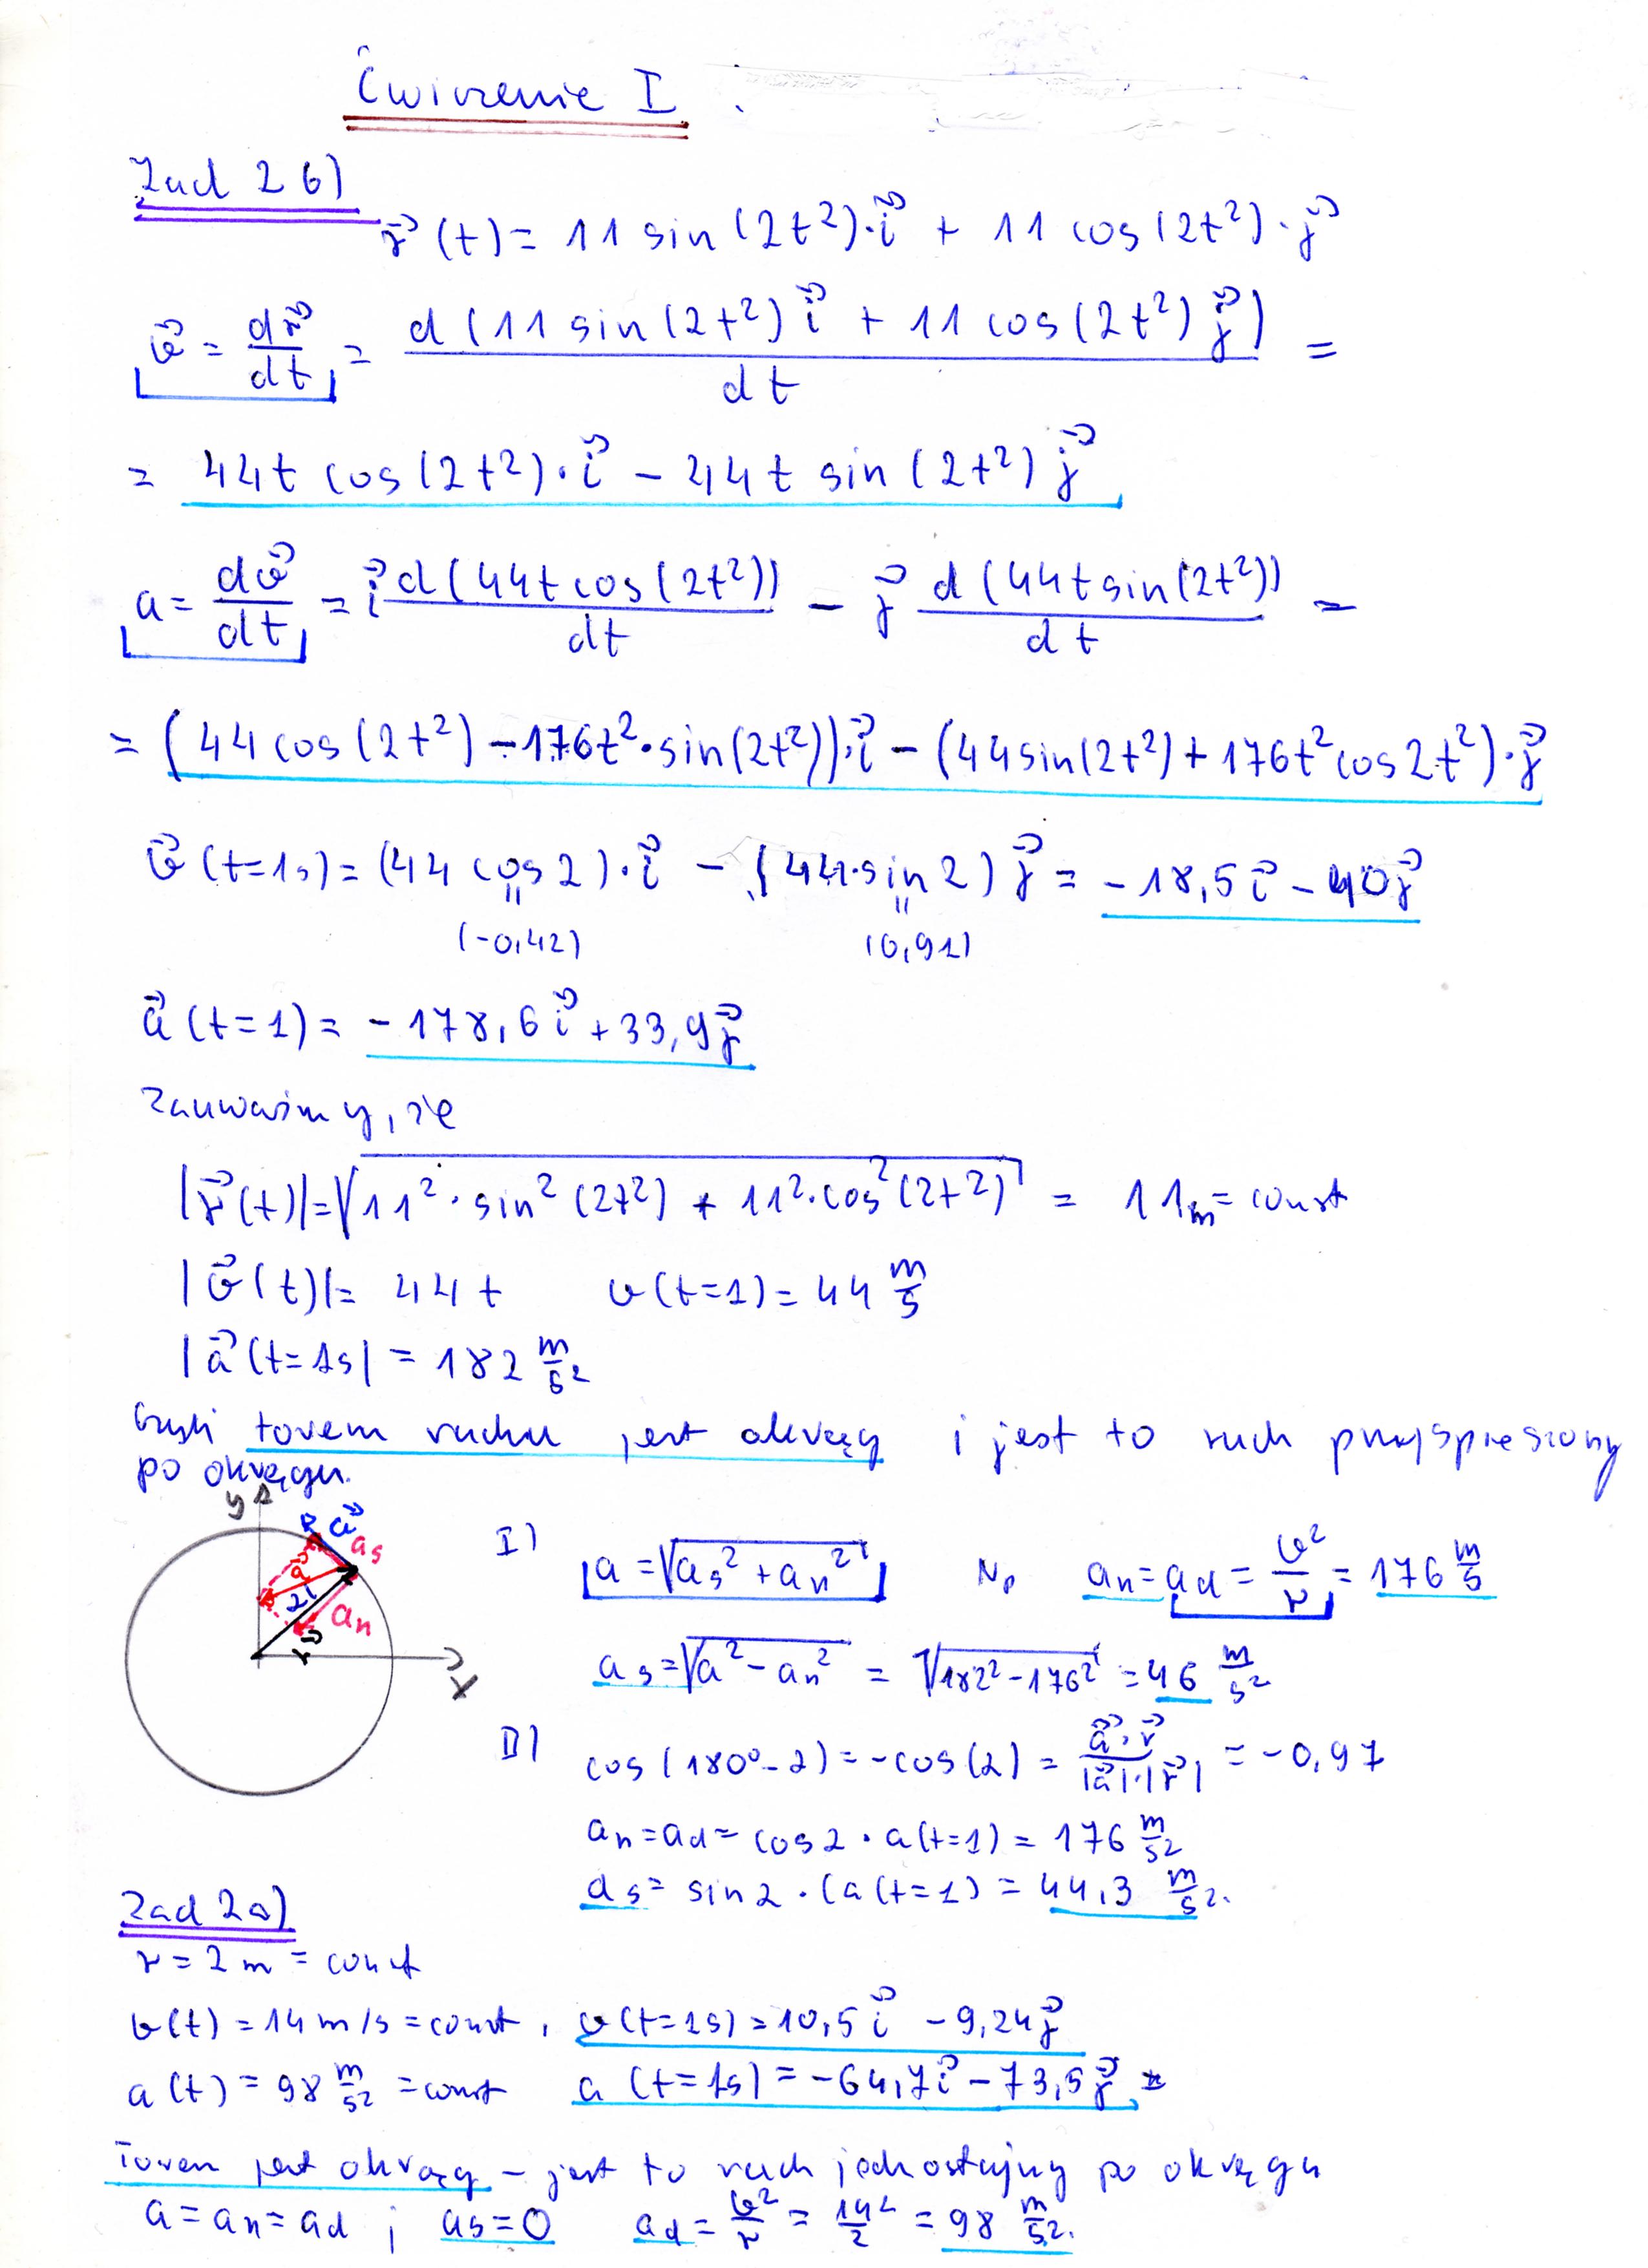 Ćwiczenie I
Zad 2 b)
r⃗ (t) = 11 sin (2t²)·i⃗ + 11 cos (2t²)·j⃗
v⃗ = dr⃗/dt = d (11 sin (2t²) i⃗ + 11 cos (2t²) j⃗)/dt =
= 44t cos (2t²)·i⃗ − 44t sin (2t²) j⃗
a = dv⃗/dt = i⃗ d(44t cos (2t²))/dt − j⃗ d (44t sin (2t²))/dt =
= (44 cos (2t²) − 176t²·sin(2t²))·i⃗ − (44 sin(2t²) + 176t² cos 2t²)·j⃗
v⃗ (t=1s) = (44 cos 2)·i⃗ − (44·sin 2) j⃗ = −18,5 i⃗ − 40 j⃗
(−0,42) (0,91)
a⃗ (t=1) = −178,6 i⃗ + 33,9 j⃗
Zauważmy, że
|r⃗(t)| = √(11²·sin² (2t²) + 11²·cos² (2t²)) = 11m = const
|v⃗(t)| = 44t v(t=1) = 44 m/s
|a⃗ (t=1s| = 182 m/s²
Czyli torem ruchu jest okrąg i jest to ruch przyspieszony
po okręgu.
y a⃗ as
a⃗ 2 an
r⃗ x
I) a = √(as² + an²) Np an = ad = v²/r = 176 m/s
as = √(a² − an²) = √(182² − 176²) = 46 m/s²
II) cos (180° − 2) = −cos (2) = a⃗·r⃗/|a⃗|·|r⃗| = −0,97
an = ad = cos 2 · a(t=1) = 176 m/s²
as = sin 2 · (a (t=1) = 44,3 m/s².
Zad 2a)
r = 2 m = const
v(t) = 14 m/s = const, v (t=1s) = 10,5 i⃗ − 9,24 j⃗
a (t) = 98 m/s² = const a (t=1s) = −64,7 i⃗ − 73,5 j⃗
Torem jest okrąg – jest to ruch jednostajny po okręgu
a = an = ad ; as = 0 ad = v²/r = 14²/2 = 98 m/s².